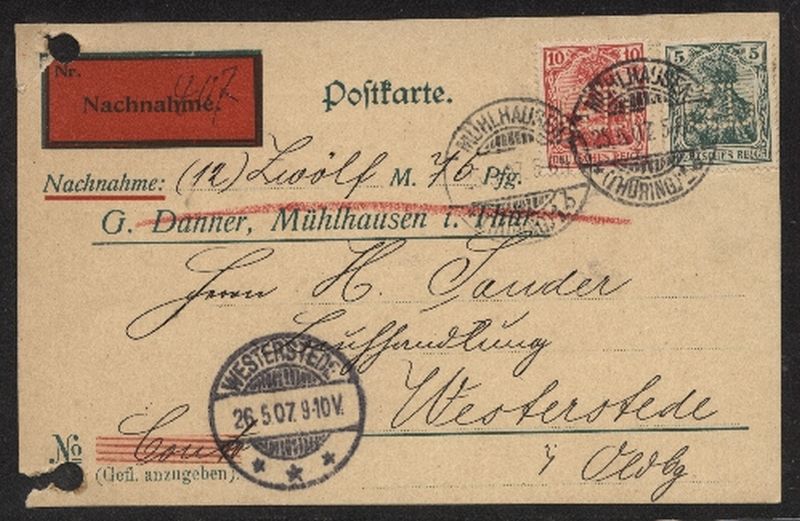 Nr.
Nachnahme. 417
Postkarte.
10 10
DEUTSCHES REICH
5 5
DEUTSCHES REICH
MÜHLHAUSEN
MÜHLHAUSEN
25.5.07. 5-
(THÜRING.)
Nachnahme: (12) Zwölf M. 76 Pfg.
G. Danner, Mühlhausen i. Thür.
Herrn H. Sander
Westerstede
i/ Oldbg
WESTERSTEDE
26.5.07. 9-10V.
No Conto
(Gefl. anzugeben).